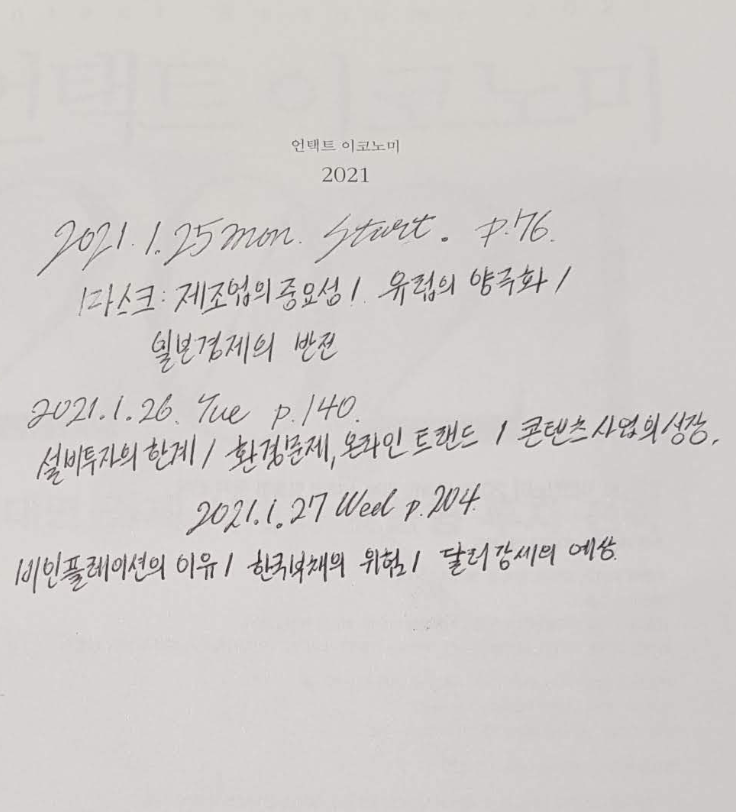 언택트 이코노미
2021
2021. 1. 25 mon. Start. P.76.
마스크: 제조업의 중요성 /. 유럽의 양극화 /
일본경제의 반전
2021. 1. 26. Tue p.140.
설비투자의 한계 / 환경문제, 온라인 트랜드 / 콘텐츠 사업의 성장,
2021. 1. 27 Wed p.204.
비인플레이션의 이유 / 한국부채의 위험 / 달러강세의 예상.